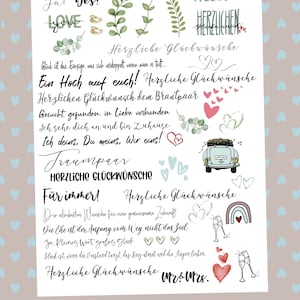 Ja! Yes!
LOVE
HERZLICHEN
Herzliche Glückwünsche
Glück ist das Einzige, was sich verdoppelt wenn man es teilt.
Ein Hoch auf euch! Herzliche Glückwünsche
Herzlichen Glückwunsch dem Brautpaar
Gesucht gefunden, in Liebe verbunden.
Ich sehe dich an und bin Zuhause
Ich deins, Du meins, Wir eins!
Traumpaar
HERZLICHE GLÜCKWÜNSCHE
Für immer! Herzliche Glückwünsche
Die allerbesten Wünsche für eine gemeinsame Zukunft
Die Ehe ist der Anfang vom Weg, nicht das Ziel
Ja. Kleines Wort, großes Glück
Glück ist, wenn der Verstand tanzt, das Herz atmet und die Augen lieben
Herzliche Glückwünsche Mr & Mrs.